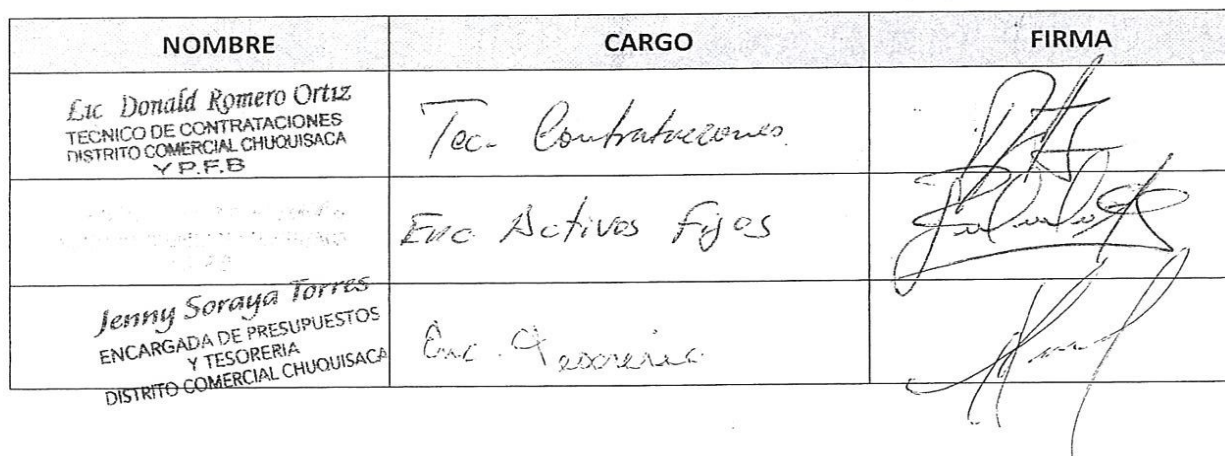 NOMBRE CARGO FIRMA
Lic Donald Romero Ortiz
TECNICO DE CONTRATACIONES
DISTRITO COMERCIAL CHUQUISACA
Y P.F.B
Tec. Contrataciones
Enc Activos Fijos
Jenny Soraya Torres
ENCARGADA DE PRESUPUESTOS
Y TESORERIA
DISTRITO COMERCIAL CHUQUISACA
Enc. Tesoreria